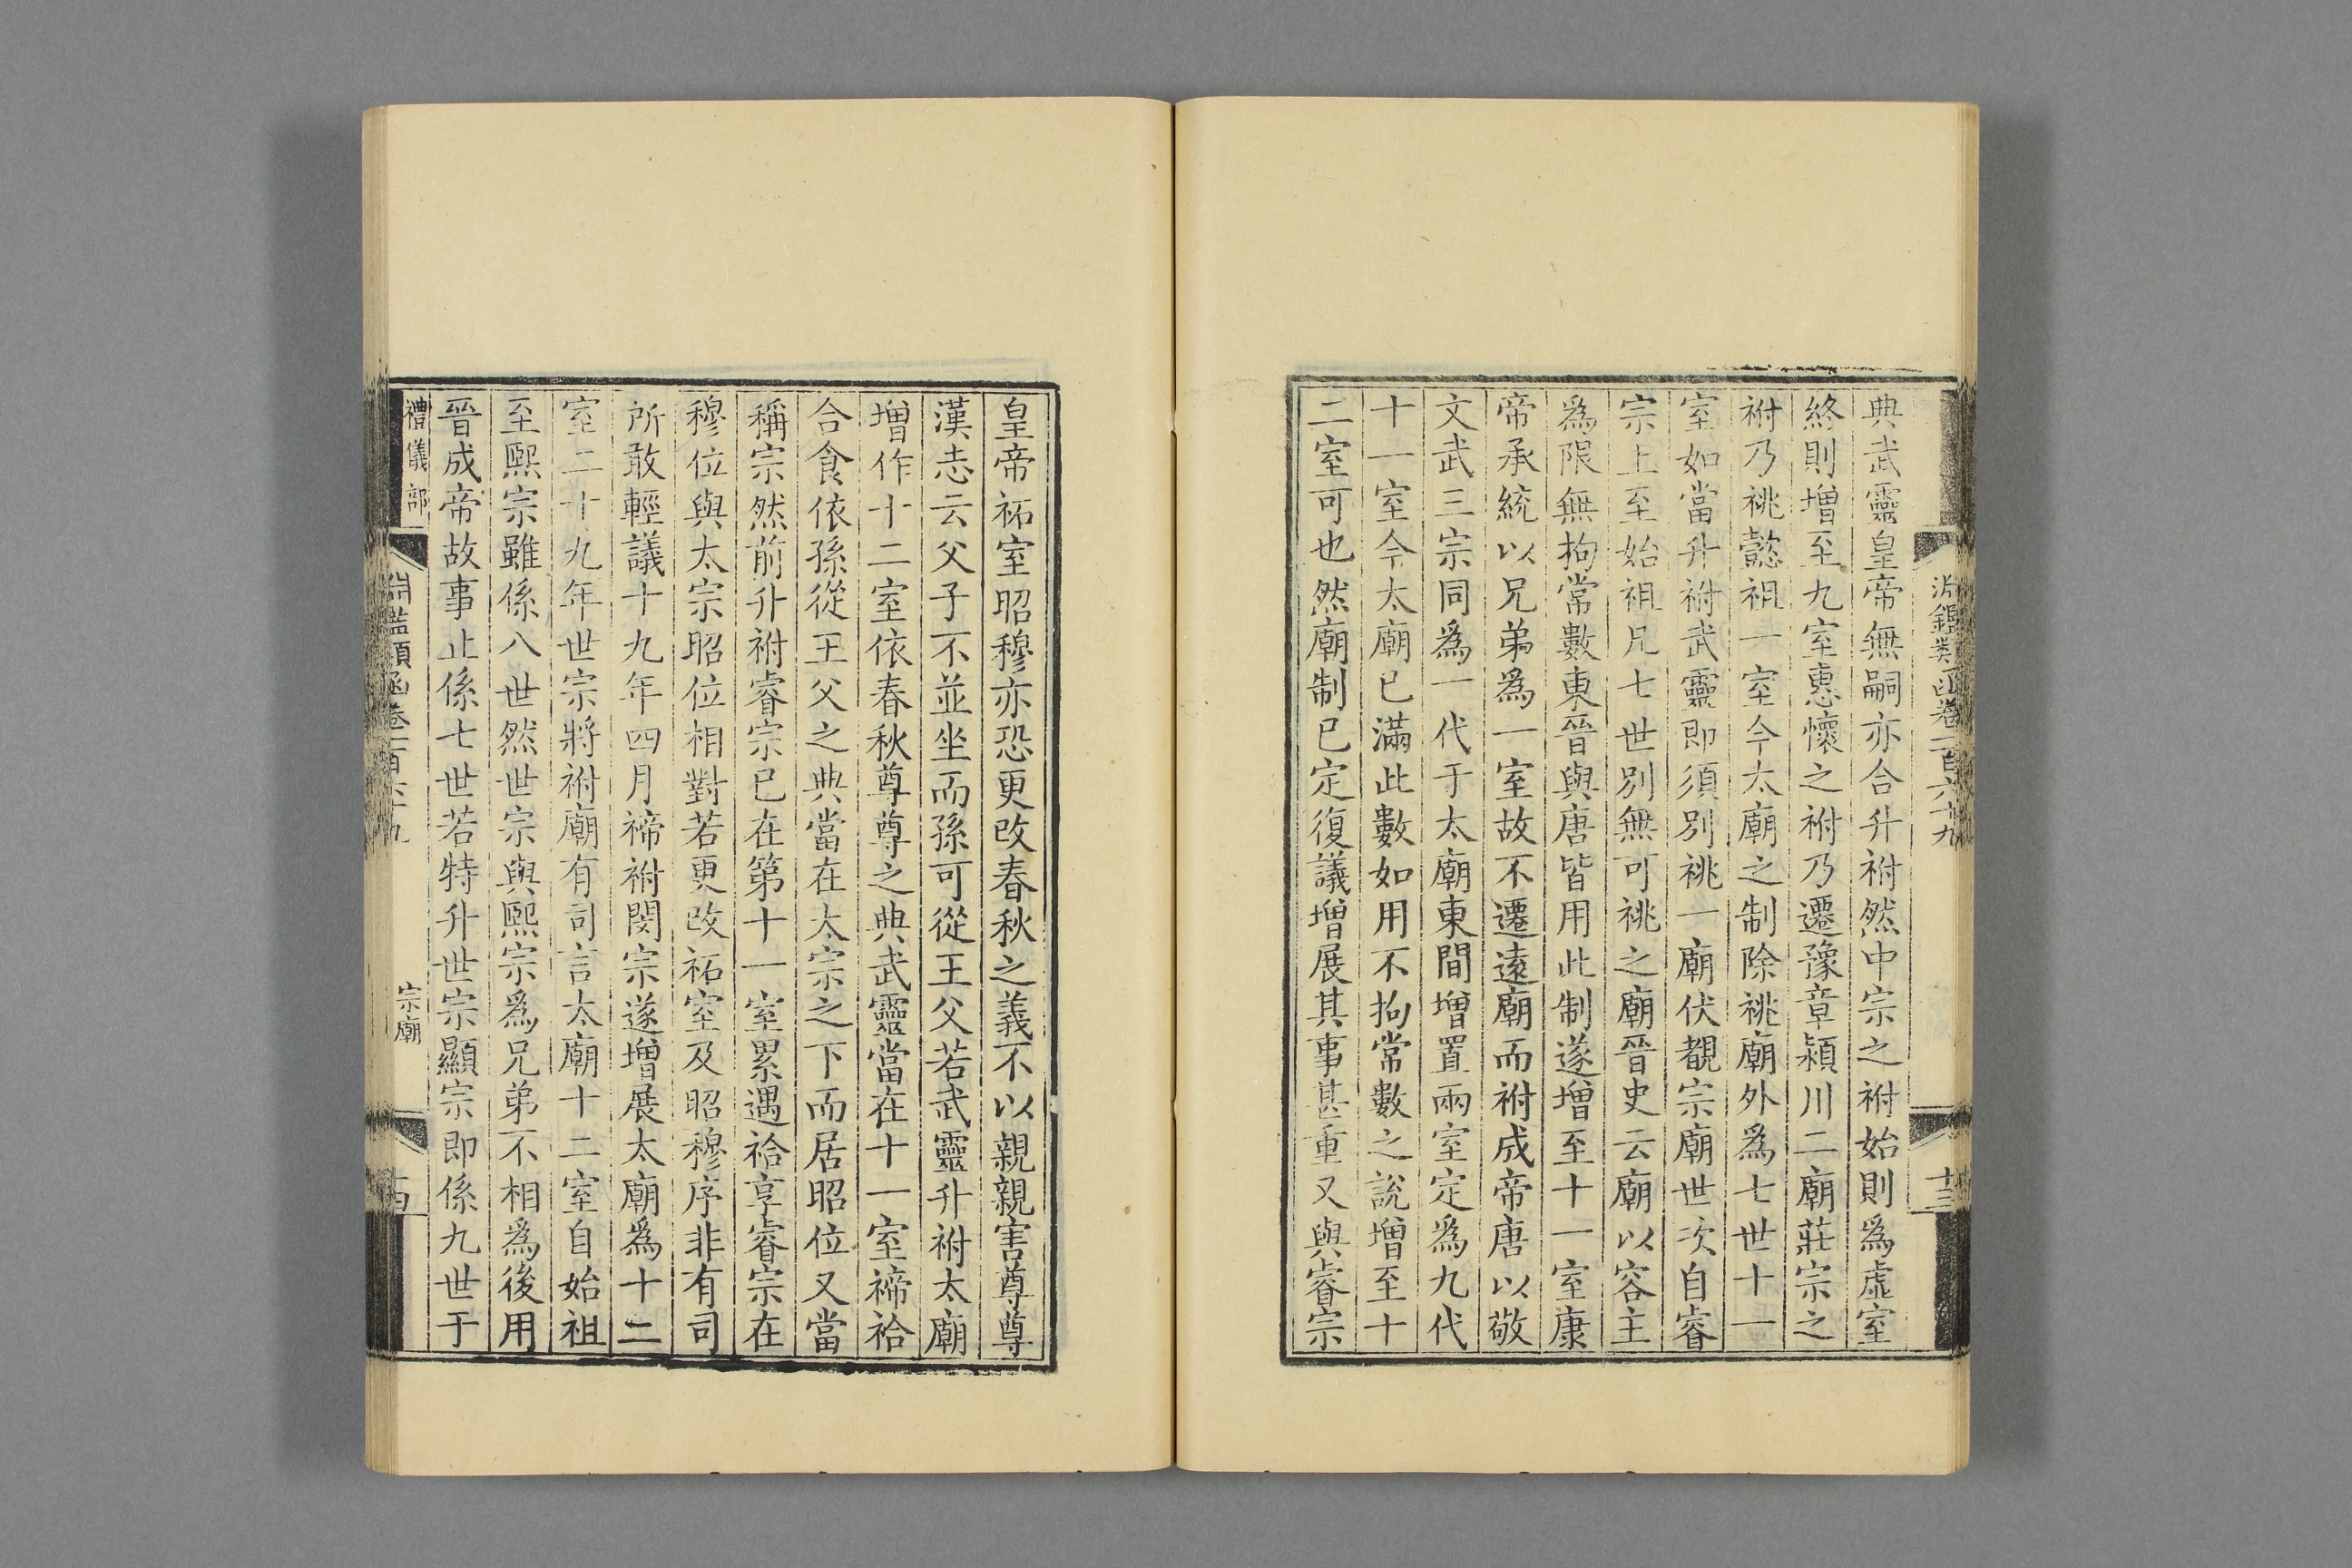 淵鑑類函卷一百六十九
十三
典武靈皇帝無嗣亦合升祔然中宗之祔始則爲虛室
終則增至九室惠懷之祔乃遷豫章潁川二廟莊宗之
祔乃祧懿祖一室今太廟之制除祧廟外爲七世十一
室如當升祔武靈即須別祧一廟伏覩宗廟世次自睿
宗上至始祖凡七世別無可祧之廟晉史云廟以容主
爲限無拘常數東晉與唐皆用此制遂增至十一室康
帝承統以兄弟爲一室故不遷遠廟而祔成帝唐以敬
文武三宗同爲一代于太廟東間增置兩室定爲九代
十一室今太廟已滿此數如用不拘常數之說增至十
二室可也然廟制已定復議增展其事甚重又與睿宗
皇帝祏室昭穆亦恐更改春秋之義不以親親害尊尊
漢志云父子不並坐而孫可從王父若武靈升祔太廟
增作十二室依春秋尊尊之典武靈當在十一室禘祫
合食依孫從王父之典當在太宗之下而居昭位又當
稱宗然前升祔睿宗已在第十一室累遇祫享睿宗在
穆位與太宗昭位相對若更改祏室及昭穆序非有司
所敢輕議十九年四月禘祔閔宗遂增展太廟爲十二
室二十九年世宗將祔廟有司言太廟十二室自始祖
至熙宗雖係八世然世宗與熙宗爲兄弟不相爲後用
晉成帝故事止係七世若特升世宗顯宗即係九世于
禮儀部
淵鑑類函卷一百六十九
宗廟
十四